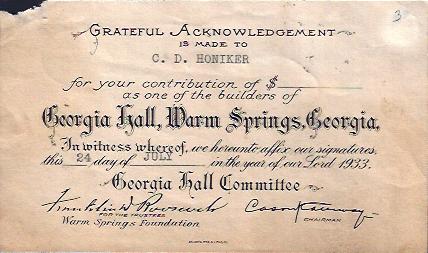 3
GRATEFUL ACKNOWLEDGEMENT
IS MADE TO
C. D. HONIKER
for your contribution of $
as one of the builders of
Georgia Hall, Warm Springs, Georgia.
In witness whereof, we hereunto affix our signatures,
this 24 day of JULY in the year of our Lord 1933.
Georgia Hall Committee
Franklin D Roosevelt Cason Callaway
FOR THE TRUSTEES CHAIRMAN
Warm Springs Foundation